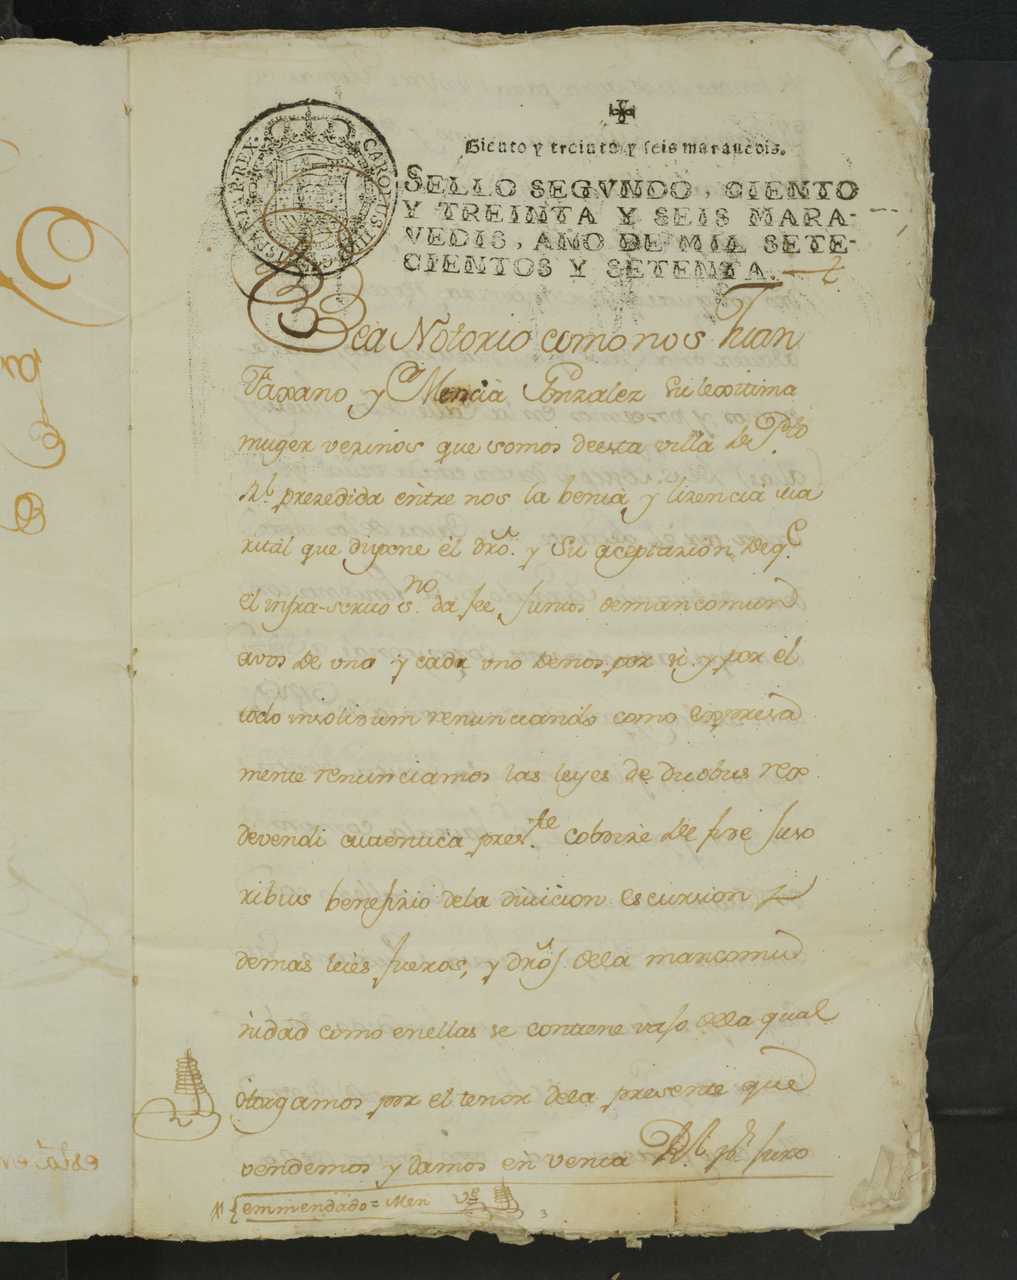 CAROLUS III D G HISPANIAR REX
Ciento y treinta y seis maravedis.
SELLO SEGVNDO, CIENTO
Y TREINTA Y SEIS MARA-
VEDIS, AÑO DE MIL SETE-
CIENTOS Y SETENTA.
Sea Notorio como nos Juan
y Mencia Gonzalez su lexitima
muger vezinos que somos deesta villa de Pto
Rl. prezedida entre nos la benia y lizencia ma
rital que dispone el dro. y su aceptazion deq.e
el infra-scrito es.no da fee juntos demancomun
avos de uno y cada uno demos por si y por el
todo insolidum renunciando como expresa
mente renunciamos las leyes de duobus rex
devendi autentica pres.te cobdize de fide juso
ribus benefizio dela divicion escursion
demas leies fueros, y dros della mancomu
nidad como enellas se contiene vajo dela qual
otorgamos por el tenor dela presente que
vendemos y damos en venta Rl. pr. juro
emmendado = Men